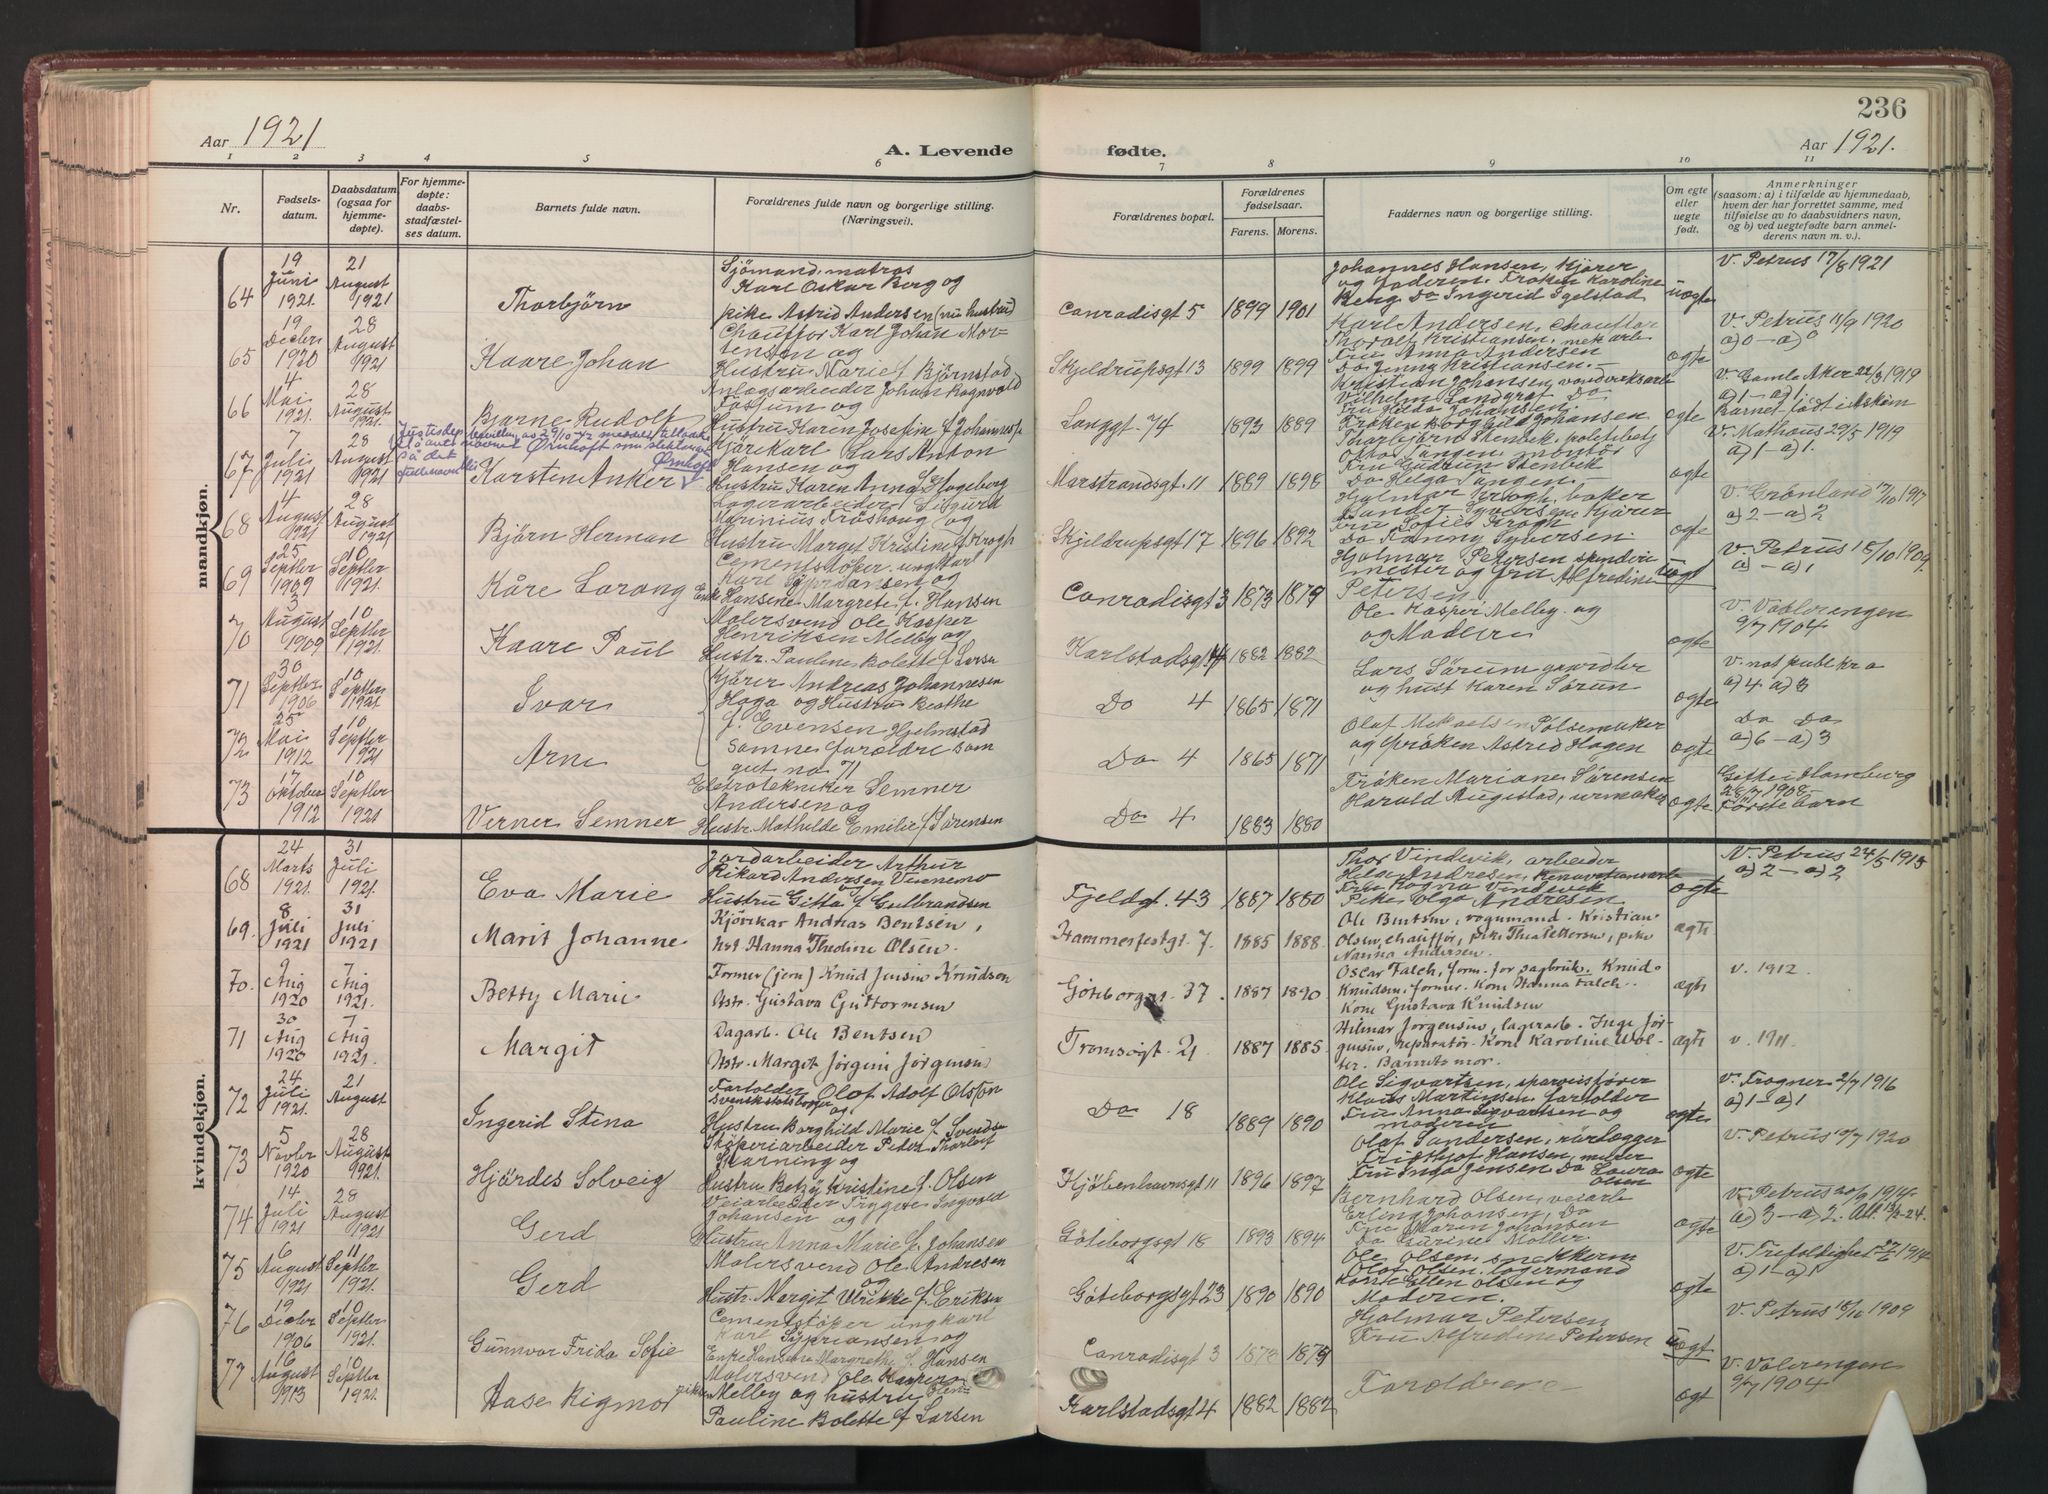 236
Aar 1921
A. Levende
fødte.
Aar 1921.
1 2 3 4 5 6 7 8 9 10 11
Nr.
Fødsels-
datum.
Daabsdatum
(ogsaa for
hjemme-
døpte).
For hjemme-
døpte:
daabs-
stadfæstel-
ses datum.
Barnets fulde navn.
Forældrenes fulde navn og borgerlige stilling.
(Næringsvei).
Forældrenes bopæl.
Forældrenes
fødselsaar.
Farens. Morens.
Faddernes navn og borgerlige stilling.
Om egte
eller
uegte
født.
Anmerkninger
(saasom: a) i tilfælde av hjemmedaab,
hvem der har forrettet samme, med
tilføielse av to daabsvidners navn,
og b) ved uegtefødte barn anmel-
derens navn m. v.).
mandkjøn.
64
19
Juni
1921.
21
August
1921
Thorbjörn
Sjömand, matros
Karl Oskar Berg og
pike Astrid Andersen (nu hustru)
Conradisgt 5
1899 1901
Johannes Hansen, Kjører
og Moderen. Fröken Karoline
Berg Do Ingerid Igelstad
uegte
V. Petrus 17/8 1921
65
19
Decbr
1920
28
August
1921
Kaare Johan
Chauffør Karl Johan Mor-
tensen og
Hustru Marie f. Björnstad
Skjeldrupsgt 13
1899 1899
Karl Andersen, chauffør
Thoralf Kristiansen, mek arb
Fru Anna Andersen
Do Jenny Kristiansen.
egte
V. Petrus 11/9 1920
a) 0 – a) 0
66
4
Mai
1921.
28
August
1921.
Bjarne Rudolf
Anlægsarbeider Johan Ragnvald
Fossum og
Hustru Karen Josefine f. Johannesen
Langgt. 74
1893 1889
Kristian Johansen,
Vilhelm Landgraf Do
Fru Helda Johansen
Fröken Borghild Johansen
egte
V. Gamle Aker 22/3 1919
a) 1 – a) 1
Barnet født i Askim
67
7
Juli
1921
28
August
1921
Karsten Anker
Ørnhoft
Kjørekarl Lars Anton
Hansen og
Hustru Karen Anna f. Hageberg
Marstrandsgt. 11
1889 1898
Thorbjörn Stenbek, politibetj
Otto Tangen montör
Fru Gudrun Stenbek
Do Helga Tangen
egte
V. Mathæus 29/5 1919
a) 1 – a) 1.
68
4
August
1921
28
August
1921
Björn Herman
Lagerarbeider Sigurd
Marinius Fröshoug og
Hustru Marget Kristine f. Krogh
Skjeldrupsgt 17
1896 1892
Hjalmar Krogh, baker
Sander Syversen kjører
Fru Sofie Krogh
Do Fanny Syversen.
egte
V. Grönland 17/10 1917
a) 2 – a) 2
69
25
Septbr
1909
10
Septbr
1921.
Kåre Lorang
Cementstöper ungkarl
Karl Sypriansen og
Enke Hansine Margrete f. Hansen
Conradisgt 3
1873 1879
Hjalmar Petersen
mester og fru Alfredine
Petersen
uegt
V. Petrus 18/10 1909.
a) – a) 1
70
3
August
1909
10
Septbr
1921.
Kaare Poul
Malersvend Ole Kasper
Henriksen Melby og
Hustr. Pauline Bolette f. Larsen
Karlstadsgt 4
1882 1882
Ole Kasper Melby og
og Moderen
egte
V. Vaalerengen
9/7 1904
71
30
Septbr
1906
10
Septbr
1921
Ivar
Kjører Andreas Johannesen
Haga og Hustru Beathe
f. Evensen Hjelmstad
Do 4
1865 1871
Lars Sörum
og hust Karen Sörum
egte
a) 4 a) 3
72
25
Mai
1912
10
Septbr
1921
Arne
Samme forældre som
gut no 71
Do 4
1865 1871
Olaf Mikaelsen Pölsemaker
og fröken Astrid Hagen
egte
Do Do
a) 6 – a) 3
73
17
Oktober
1912
10
Septbr
1921
Verner Semner
Eletrotekniker Semner
Andersen og
Hustr. Mathilde Emilie f. Sörensen
Do 4
1883 1880
Fröken Mariane Sörensen
Harald Augestad, urmaker
egte
Gifte i Hamburg
28/7 1908
Første barn
kvindekjøn.
68
24
Marts
1921.
31
Juli
1921.
Eva Marie
Jordarbeider Arthur
Rikard Andersen Vinnemo
og
Hustru Gitta f. Gulbrandsen
Fjeldgt. 43
1887 1880
Thor Vindevik, arbeider
Helge Andresen, Renovationsarb
Fru Ragna Vindevik
Pike Olga Andresen
egte
V. Petrus 24/5 1915
a) 2 – a) 2
69.
8
Juli
1921
31
Juli
1921
Marit Johanne
Kjørekar Andreas Bentsen,
hst Hanna Thodine Olsen.
Hammerfestgt. 7.
1885 1888.
Ole Bentsen, vognmand. Kristian
Olsen, chauffør, pike Thea Pettersen, pike
Nanna Andersen.
ægte
70.
9
Aug
1920
7
Aug
1921.
Betty Marie
Former (jern) Knud Jensius Knudsen
Hstr. Gustava Guttormsen
Göteborggt. 37.
1887 1890
Oscar Falch, form. for sagbruk. Knud
Knudsen, former. Kone Hanna Falch.
Kone Gustava Knudsen
ægte
v. 1912.
71
30
Aug
1920
7
Aug
1921.
Margit
Dagarb. Ole Bentsen
Hstr. Margit Jörgine Jörgensen
Tromsögt. 21.
1887 1885.
Hilmar Jörgensen, lagerarb. Inge Jör-
gensen, reparatör. Kone Karoline Wol-
ter. Barnets mor.
ægte
v. 1911.
72
24
Juli
1921.
21
August
Ingerid Stena
Farholder Olof Adolf Olsson
svensk statsborger og
Hustru Borghild Marie f. Svendsen
Do 18
1889 1890
Ole Sigvartsen, sporveisfører
Klaus Martinsen farholder
Fru Anna Sigvartsen og
moderen
egte
V. Frogner 2/7 1916
a) 1 – a) 1
73
5
Novbr
1920
28
August
1921.
Hjördes Solveig
Støperiarbeider Peder Tharlof
Skarning og
Hustru Betzy Kristine f. Olsen
Kjöbenhavnsgt 11
1896 1897
Olaf Sandersen, rörlægger
Fridthjof Hansen, murer
Fru Inga Jensen Do Laura
Olsen
egte
V. Petrus 10/7 1920
74
14
Juli
1921
28
August
Gerd
Veiarbeider Trygve Ingvald
Johansen og
Hustru Anna Marie f. Johansen
Göteborgsgt 18
1893 1894
Bernhard Olsen, veiarb
Erling Johansen, Do
Fru Maren Johansen
Do Gurine Möller.
egte
V. Petrus 20/9 1914.
a) 3 – a) 2.
75
6
August
1921
11
Septbr
1921.
Gerd
Malersvend Ole Andresen
og
Hustr. Margit Ulrikke f. Eriksen
Göteborgsgt 23
1890 1890
Ole Olsen, snekkerm
Olaf Olsen, lagermand
Ellen Olsen og
Moderen.
egte
V. Trefoldighet 27/6 1914
a) 1 – a) 1
76
19
Decbr
1906
10
Septbr
1921.
Gunnvor Frida Sofie
Cementstöper ungkarl
Karl Sypriansen og
Enke Hansine Margrethe f. Hansen
Conradisgt 3
1873 1879
Hjalmar Petersen
Fru Alfredine Petersen
uegt
V. Petrus 18/10 1909
77
16
August
1913
10
Septbr
1921.
Aase Rigmor
Malersvend Ole Kasper
Melby og hustru
Pauline Bolette f. Larsen
Karlstadsgt 4
1882 1882
Foreldrene
egt
V. Vålerengen
9/7 1904